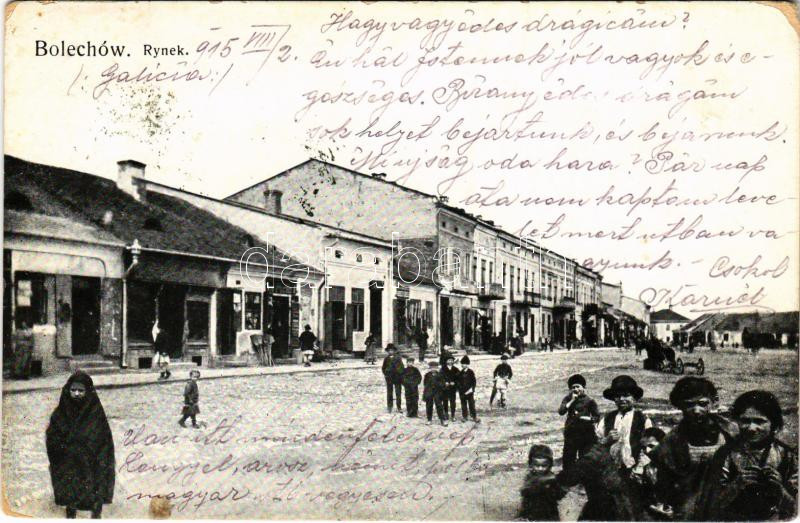 Bolechów. Rynek. 915 VIII/2.
/: Galicia :/
Hagyvagy édes drágicám?
Én hál Istennek jól vagyok és e-
gészséges. Bizony édes drágám
sok helyet bejártunk, és bejárunk.
Mi ujság oda haza? Pár nap
ota nem kaptam leve-
let mert utban va-
gyunk. - Csokol
Karoĺy
Van itt mindenféle nép
Lengyel, orosz, német,
magyar vegyesen.